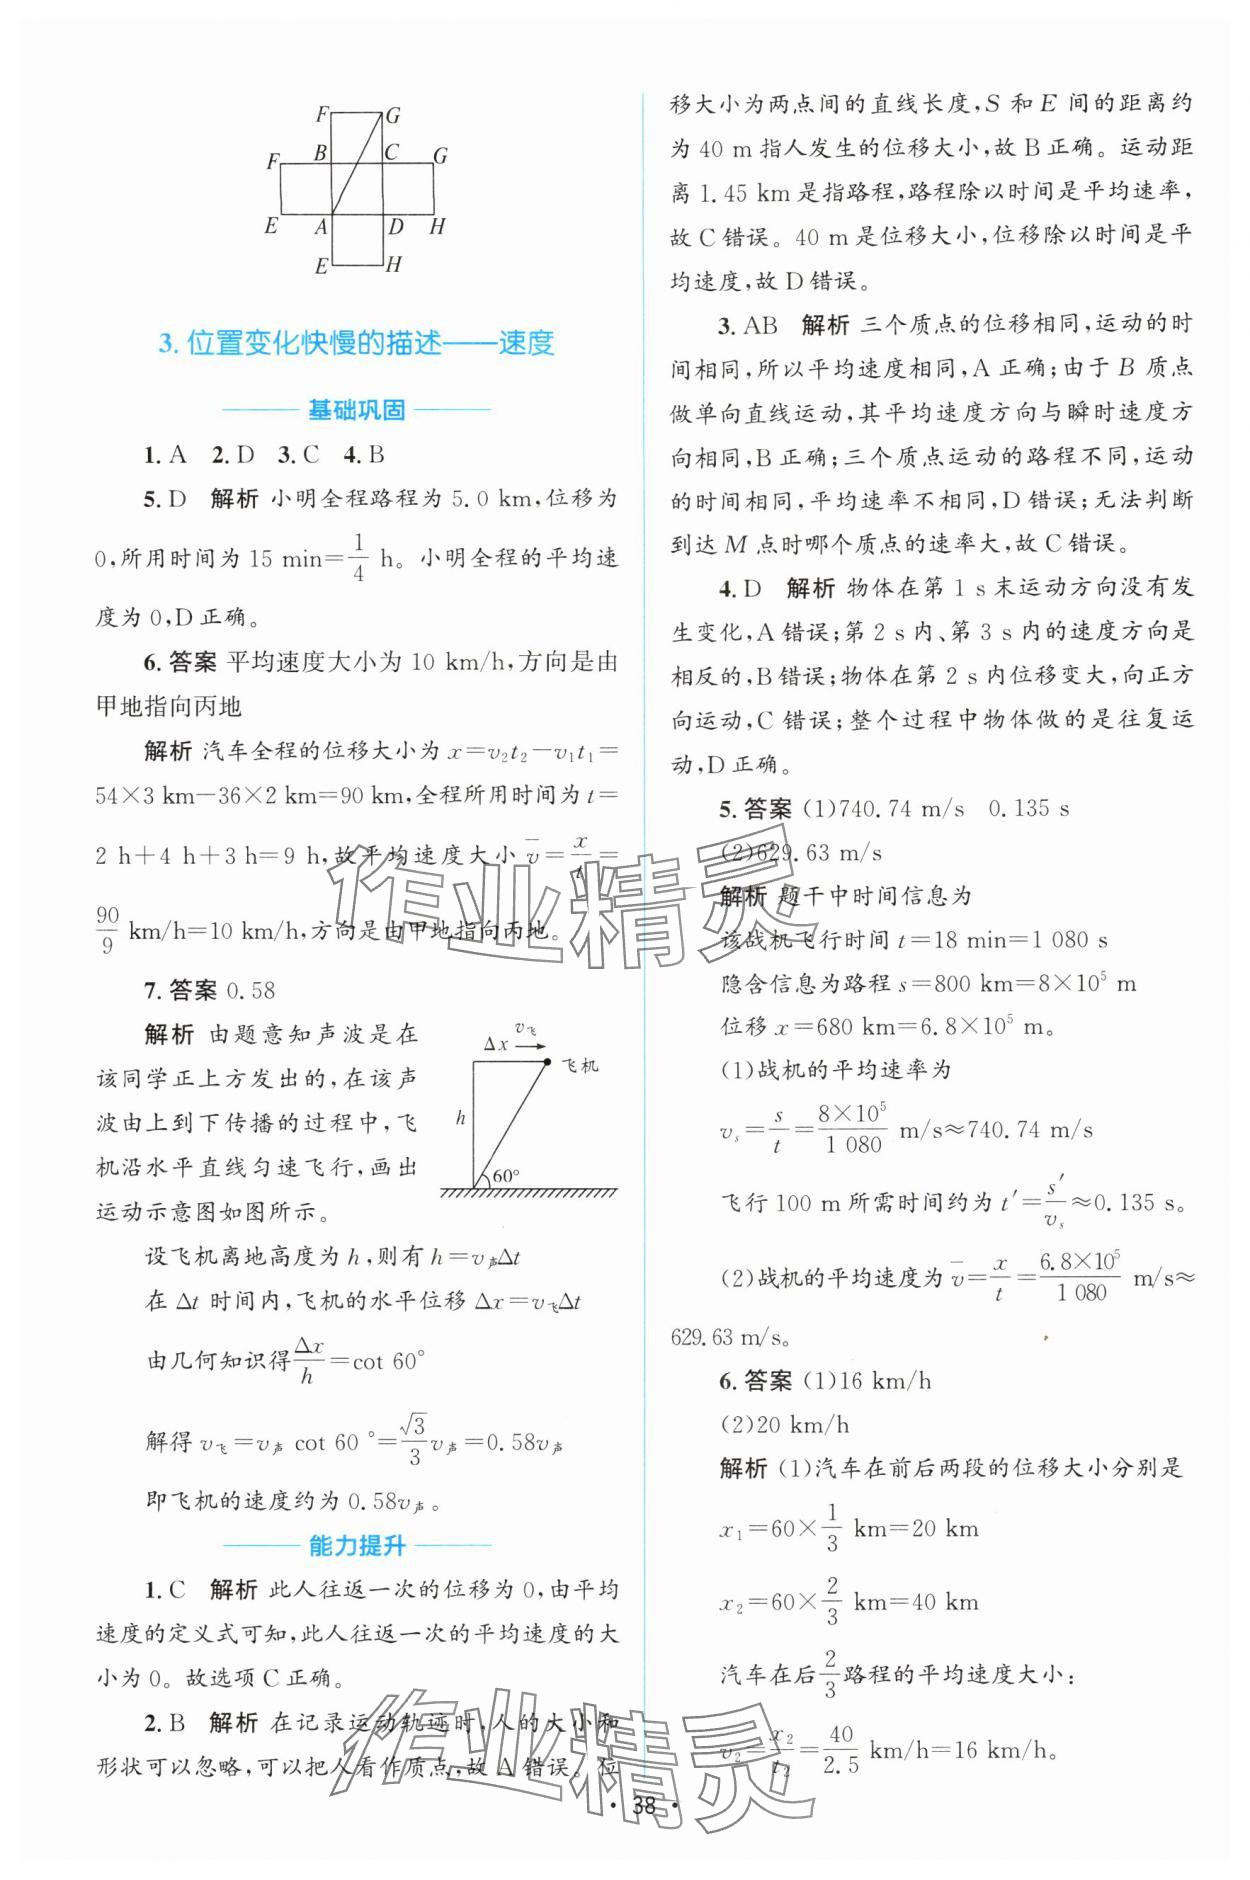 F G
F B C G
E A D H
E H
3. 位置变化快慢的描述——速度
基础巩固
1. A 2. D 3. C 4. B
5. D 解析 小明全程路程为 5.0 km,位移为
0,所用时间为 15 min=1/4 h。小明全程的平均速
度为 0,D 正确。
6. 答案 平均速度大小为 10 km/h,方向是由
甲地指向丙地
解析 汽车全程的位移大小为 x=v₂t₂-v₁t₁=
54×3 km-36×2 km=90 km,全程所用时间为 t=
2 h+4 h+3 h=9 h,故平均速度大小 v̄=x/t=
90/9 km/h=10 km/h,方向是由甲地指向丙地。
7. 答案 0.58
解析 由题意知声波是在
该同学正上方发出的,在该声
波由上到下传播的过程中,飞
机沿水平直线匀速飞行,画出
运动示意图如图所示。
v飞
Δx
飞机
h
60°
设飞机离地高度为 h,则有 h=v声Δt
在 Δt 时间内,飞机的水平位移 Δx=v飞Δt
由几何知识得Δx/h=cot 60°
解得 v飞=v声 cot 60°=√3/3 v声=0.58v声
即飞机的速度约为 0.58v声。
能力提升
1. C 解析 此人往返一次的位移为 0,由平均
速度的定义式可知,此人往返一次的平均速度的大
小为 0。故选项 C 正确。
2. B 解析 在记录运动轨迹时,人的大小和
形状可以忽略,可以把人看作质点,故 A 错误。位
移大小为两点间的直线长度,S 和 E 间的距离约
为 40 m 指人发生的位移大小,故 B 正确。运动距
离 1.45 km 是指路程,路程除以时间是平均速率,
故 C 错误。40 m 是位移大小,位移除以时间是平
均速度,故 D 错误。
3. AB 解析 三个质点的位移相同,运动的时
间相同,所以平均速度相同,A 正确;由于 B 质点
做单向直线运动,其平均速度方向与瞬时速度方
向相同,B 正确;三个质点运动的路程不同,运动
的时间相同,平均速率不相同,D 错误;无法判断
到达 M 点时哪个质点的速率大,故 C 错误。
4. D 解析 物体在第 1 s 末运动方向没有发
生变化,A 错误;第 2 s 内、第 3 s 内的速度方向是
相反的,B 错误;物体在第 2 s 内位移变大,向正方
向运动,C 错误;整个过程中物体做的是往复运
动,D 正确。
5. 答案 (1)740.74 m/s 0.135 s
(2)629.63 m/s
解析 题干中时间信息为
该战机飞行时间 t=18 min=1 080 s
隐含信息为路程 s=800 km=8×10⁵ m
位移 x=680 km=6.8×10⁵ m。
(1)战机的平均速率为
vₛ=s/t=8×10⁵/1 080 m/s≈740.74 m/s
飞行 100 m 所需时间约为 t′=s′/vₛ≈0.135 s。
(2)战机的平均速度为 v̄=x/t=6.8×10⁵/1 080 m/s≈
629.63 m/s。
6. 答案 (1)16 km/h
(2)20 km/h
解析 (1)汽车在前后两段的位移大小分别是
x₁=60×1/3 km=20 km
x₂=60×2/3 km=40 km
汽车在后2/3路程的平均速度大小:
v₂=x₂/t₂=40/2.5 km/h=16 km/h。
· 38 ·
作业精灵
作业精灵